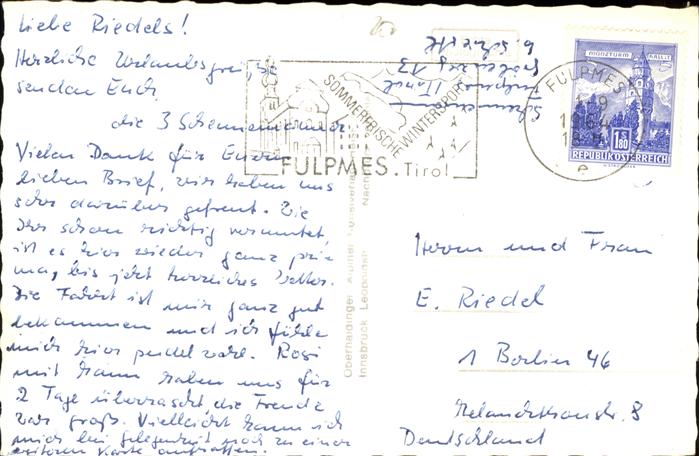 Liebe Riedels!
Herzliche Urlaubsgrüße
senden Euch
die 3
Vielen Dank für Euren
lieben Brief, wir haben uns
sehr darüber gefreut. Wie
Ihr schon richtig vermutet
ist es hier wieder ganz pri-
ma, bis jetzt herrliches Wetter.
Die Fahrt ist mir ganz gut
bekommen und ich fühle
mich hier pudelwohl. Rosi
mit Mann haben uns für
2 Tage überrascht, die Freude
war groß. Vielleicht kann ich
mich bei Gelegenheit noch zu einer
weiteren Karte aufraffen.
Fulpmes Tirol
13
SOMMERFRISCHE WINTERSPORT
FULPMES . Tirol
FULPMES
1964
18
e
MÜNZTURM HALL i. T.
S 1.80
REPUBLIK ÖSTERREICH
Innsbruck, Leopoldstr.
Herrn und Frau
E. Riedel
1 Berlin 46
Melanchthonstr. 8
Deutschland